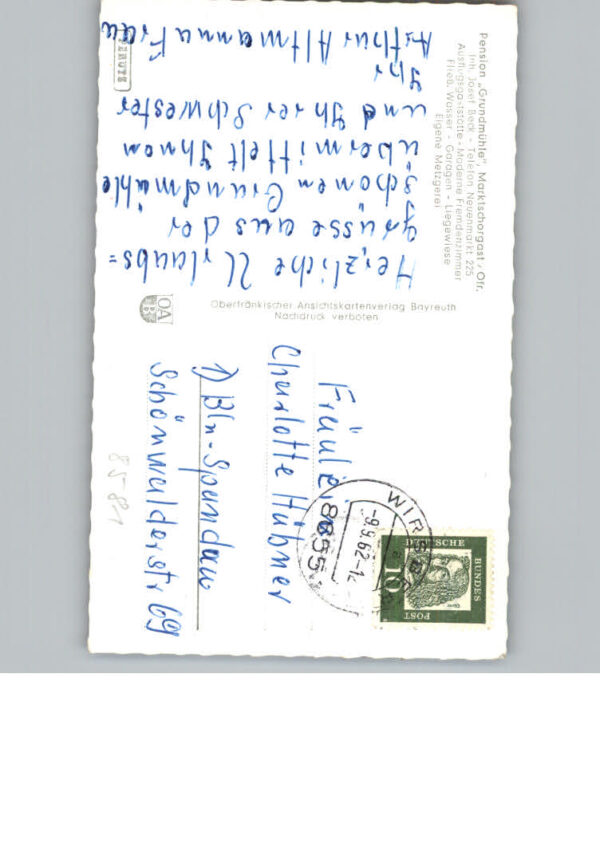 Pension „Grundmühle“, Marktschorgast / Ofr.
Inh. Josef Beck - Telefon Neuenmarkt 225
Ausflugsgaststätte - Moderne Fremdenzimmer
Fließ. Wasser - Garagen - Liegewiese
Eigene Metzgerei
Herzliche Urlaubs=
grüsse aus der
schönen Grundmühle
übermittelt Ihnen
und Ihrer Schwester
Ihr
Arthur Altmann u Frau
Oberfränkischer Ansichtskartenverlag Bayreuth
Nachdruck verboten
OA
Fräulein
Charlotte Hübner
1) Bln-Spandau
Schönwalderstr 69
WIRSBERG
-9.9.62-12
8655
DEUTSCHE
BUNDES
POST
10
Dürer
85-81